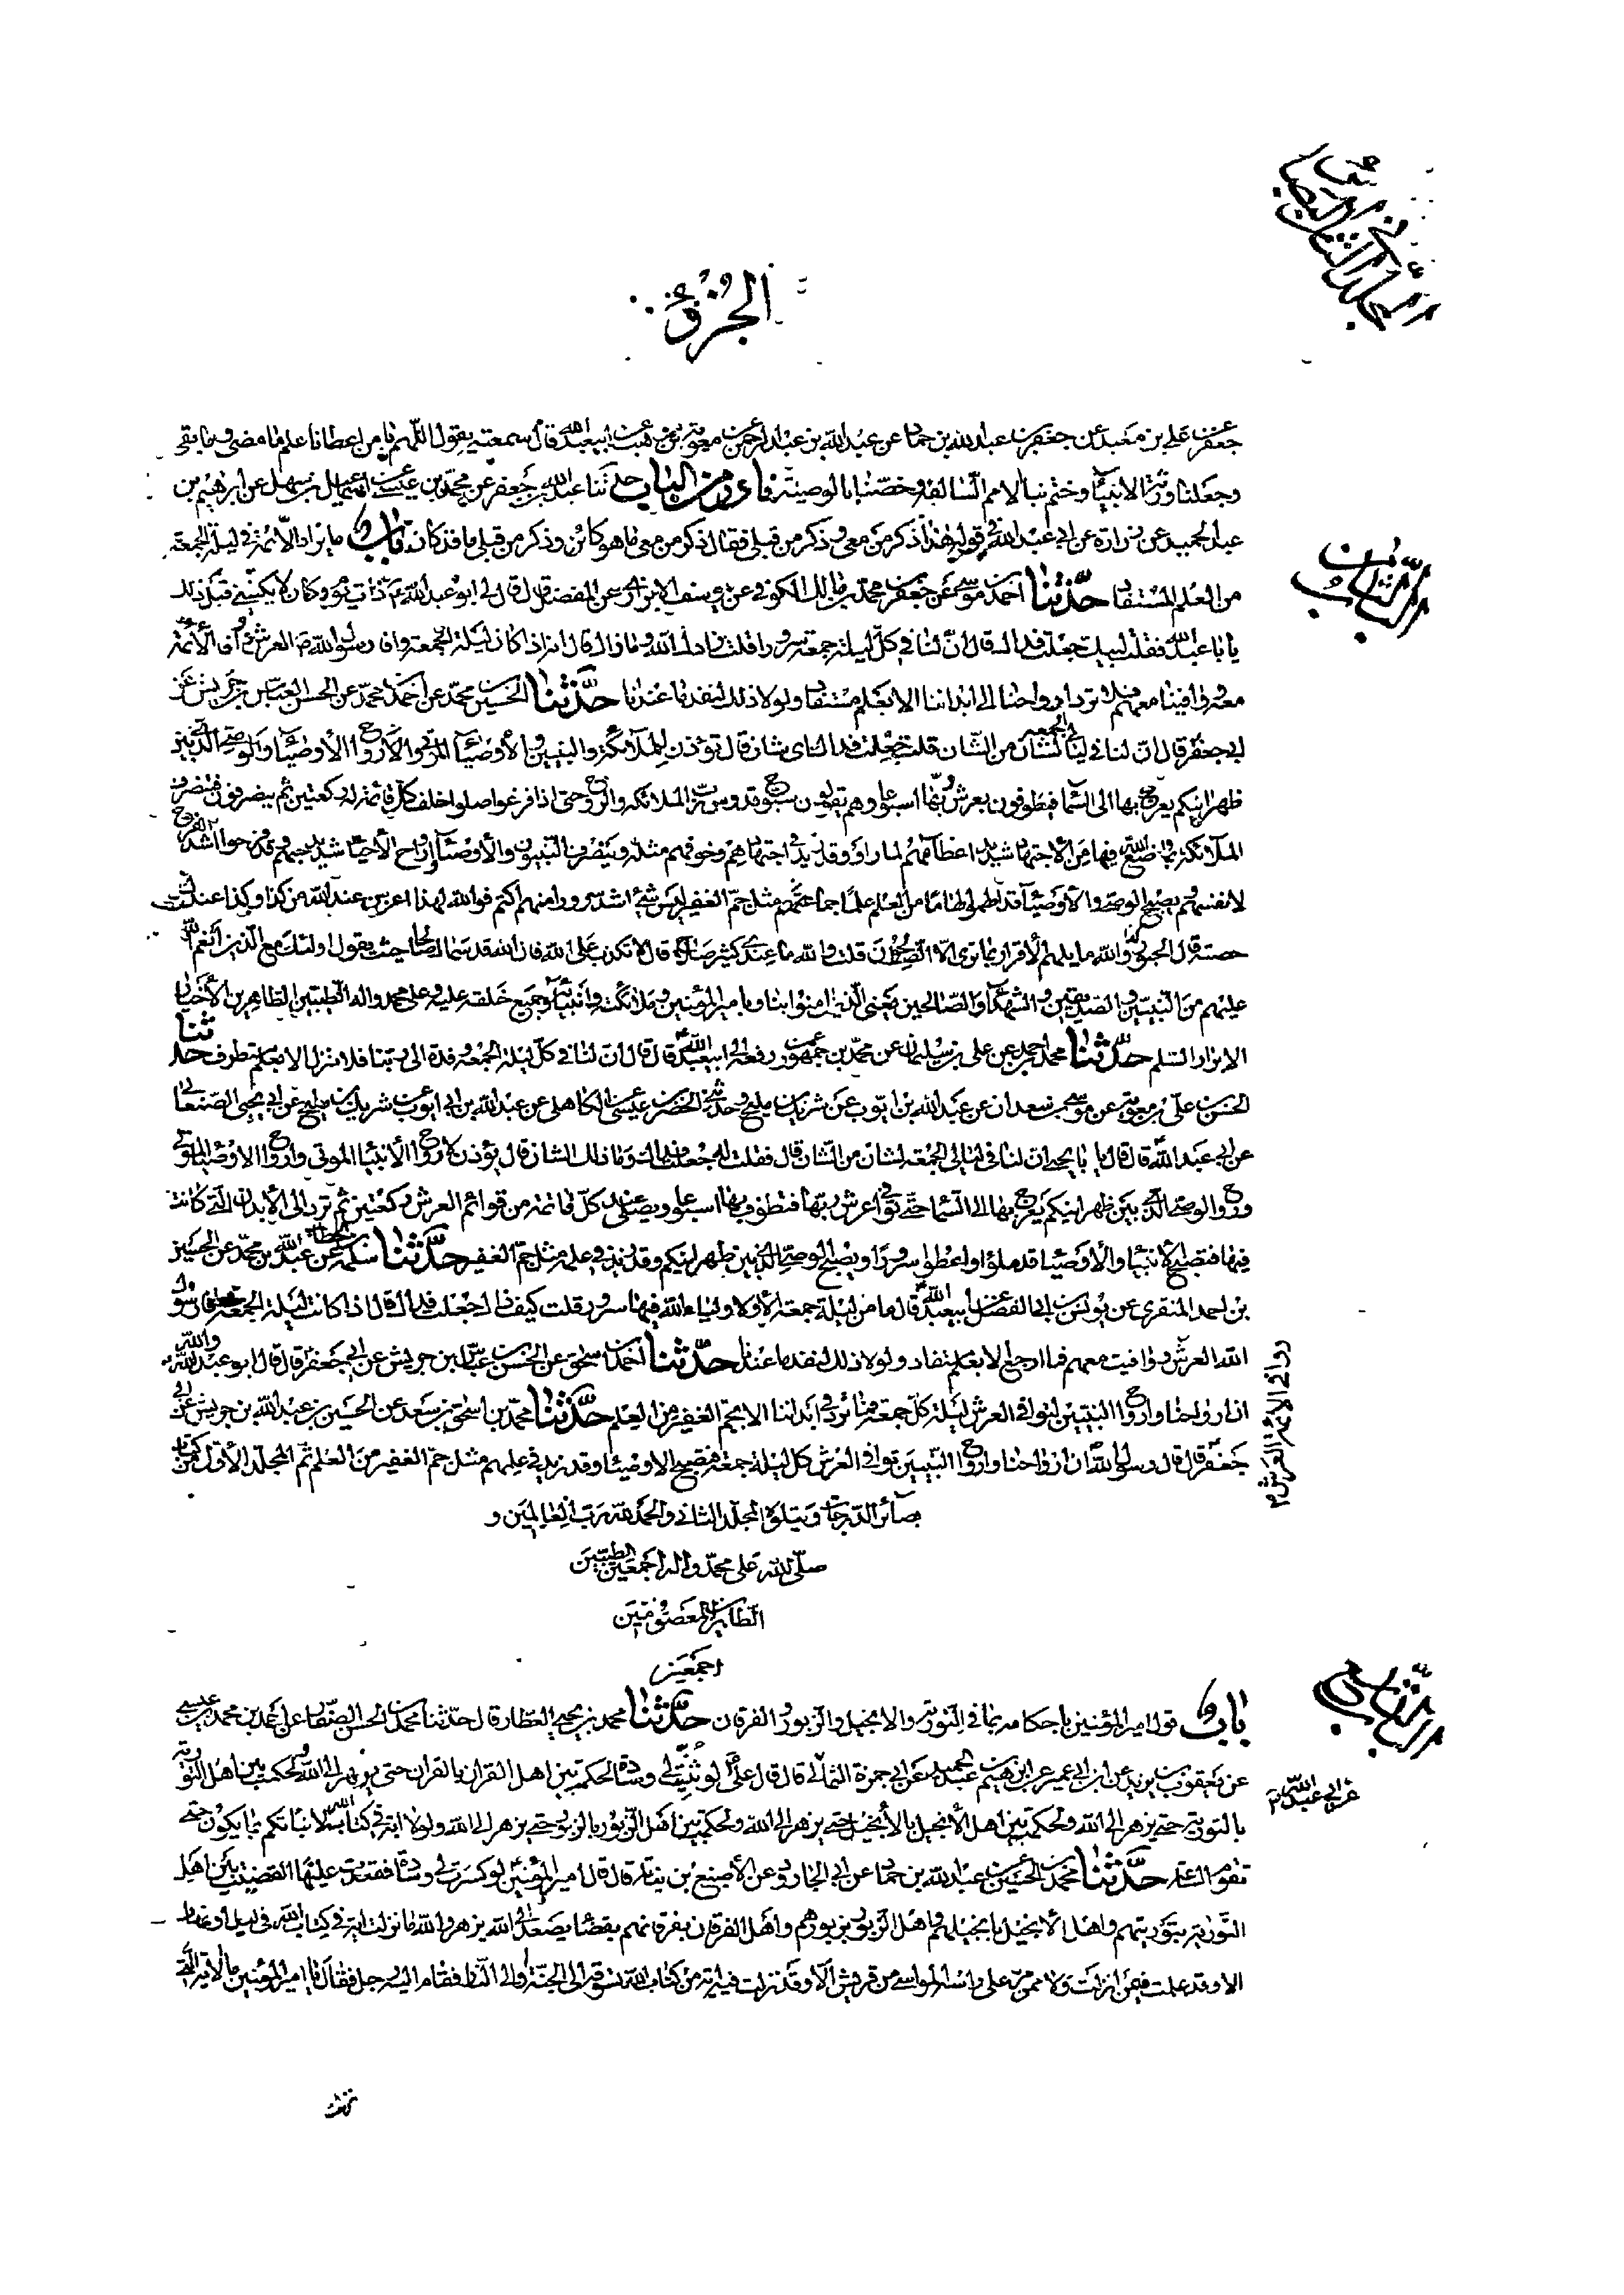 المجلد الثاني من بصائر
الجزؤ
جعفر عن علي بن معبد عن جعفر بن عبد الله بن حماد عن عبد الله بن عبد الرحمن عن معوية بن وهب عن ابيعبد الله قال سمعته يقول اللهم يا من اعطانا علم ما مضى وما بقي
وجعلنا ورثة الانبياء وختم بنا الامم السالفة وخصنا بالوصية نادر من الباب حدثنا عبد الله بن جعفر عن محمد بن عيسى عن اسماعيل بن سهل عن ابرهيم بن
عبد الحميد عن زرارة عن ابي عبد الله في قوله هذا ذكر من معي وذكر من قبلي فقال ذكر من معي ما هو كائن وذكر من قبلي ما قد كان باب ما يزاد الائمة في ليلة الجمعة
الباب الثامن
من العلم المستفاد حدثنا احمد بن موسى عن جعفر بن محمد بن مالك الكوفي عن يوسف الابزاري عن المفضل قال قال لي ابو عبد الله ع ذات يوم وكان لا يكنيني قبل ذلك
يا با عبد الله فقلت لبيك جعلت فداك قال ان لنا في كل ليلة جمعة سرورا قلت زادك الله وما ذاك قال انه اذا كان ليلة الجمعة وافى رسول الله ص العرش ووافى الائمة
معه ووافينا معهم فلا ترد ارواحنا الى ابداننا الا بعلم مستفاد ولولا ذلك لنفد ما عندنا حدثنا الحسين بن محمد عن احمد بن محمد عن الحسن بن العباس بن جريش عن
ابي جعفر قال ان لنا في ليالي الجمعة لشأن من الشان قلت جعلت فداك اي شان قال تؤذن للملائكة والنبيين والأوصياء الموتى والأرواح الأوصياء والوصي الذي بين
ظهرانيكم يعرج بها الى السماء فيطوفون بعرش ربها اسبوعا وهم يقولون سبوح قدوس رب الملائكة والروح حتى اذا فرغوا صلوا خلف كل قائمة له ركعتين ثم ينصرفون فتنصرف
الملائكة بما وضع الله فيها من الاجتهاد شديد اعظامهم لما راوا وقد زيد في اجتهادهم وخوفهم مثله وينصرف النبيون والأوصياء وارواح الأحياء شديد حبهم وقد فرحوا اشد الفرح
لانفسهم ويصبح الوصي والاوصياء قد الهموا الهاما من العلم علما جما مثل جم الغفير ليس شئ اشد سرورا منهم اكتم فوالله لهذا اعز من عند الله من كذا وكذا عندك
حصنة قال والله ما يلهم الاقرار بما ترى الا الصالحون قلت والله ما عندي كثير صلاح قال لا تكذب على الله فان الله قد سماك صالحا حيث يقول اولئك مع الذين انعم الله
عليهم من النبيين والصديقين والشهداء والصالحين يعني الذين امنوا بنا وبامير المؤمنين وملائكته وانبيائه وجميع خلقه عليه وعلى محمد واله الطيبين الطاهرين الأخيار
الابرار السلم حدثنا محمد بن احمد عن علي بن سليمان عن محمد بن جمهور عمن رفعه الى ابيعبد الله قال قال ان لنا في كل ليلة الجمعة وفدة الى ربنا فلا ننزل الا بعلم مستطرف حدثنا
الحسن بن علي بن معوية عن موسى بن سعدان عن عبد الله بن ايوب عن شريك بن مليح وحدثني الخضر بن عيسى الكاهلي عن عبد الله بن ابي ايوب عن شريك بن مليح عن ابي يحيى الصنعاني
عن ابي عبد الله قال قال يا با يحيى ان لنا في ليالي الجمعة لشان من الشان قال فقلت له جعلت فداك وما ذلك الشان قال يؤذن لارواح الأنبياء الموتى وارواح الاوصياء الموتى
وروح الوصي الذي بين ظهرانيكم يعرج بها الى السماء حتى توافي عرش ربها فتطوف بها اسبوعا وتصلي عند كل قائمة من قوائم العرش ركعتين ثم ترد الى الأبدان التي كانت
فيها فتصبح الأنبياء والأوصياء قد ملؤا واعطوا سرورا ويصبح الوصي الذي بين ظهرانيكم وقد زيد في علمه مثل جم الغفير حدثنا سلمة بن الخطاب عن عبد الله بن محمد عن الحسين
بن احمد المنقري عن يونس بن ابي الفضل عن ابيعبد الله قال ما من ليلة جمعة الا ولاولياء الله فيها سرور قلت كيف ذاك جعلت فداك قال اذا كانت ليلة الجمعة وافى رسول
الله العرش ووافيت معهم فما ارجع الا بعلم مستفاد ولولا ذلك لنفد ما عندنا حدثنا احمد بن اسحق عن الحسن بن عباس ابن جريش عن ابي جعفر قال قال ابو عبد الله والله
ووافى الائمة العرش م
ان ارواحنا وارواح النبيين لتوافي العرش ليلة كل جمعة فما ترد في ابداننا الا بجم الغفير من العلم حدثنا محمد بن اسحق بن سعد عن الحسن بن عبد الله بن جريش عن ابي
جعفر قال قال رسول الله ان ارواحنا وارواح النبيين توافي العرش كل ليلة جمعة فتصبح الاوصياء وقد زيد في علمهم مثل جم الغفير من العلم تم المجلد الأول من كتاب
بصائر الدرجات ويتلوه المجلد الثاني والحمد لله رب العالمين و
صلى الله على محمد واله اجمعين الطيبين
الطاهرين المعصومين
اجمعين
الباب التاسع
باب قول امير المؤمنين باحكامه بما في التورية والانجيل والزبور والفرقان حدثنا محمد بن يحيى العطار قال حدثنا محمد بن الحسن الصفار عن احمد بن محمد بن عيسى
عن يعقوب بن يزيد عن ابن ابي عمير عن ابرهيم بن عبد الحميد عن ابي حمزة الثمالي قال قال علي لو ثنيت لي وسادة لحكمت بين اهل القران بالقران حتى يزهر الى الله ولحكمت بين اهل التورية
عن ابي عبد الله ع
بالتورية حتى يزهر الى الله ولحكمت بين اهل الأنجيل بالأنجيل حتى يزهر الى الله ولحكمت بين اهل الزبور بالزبور حتى يزهر الى الله ولولا اية في كتاب الله لانباتكم بما يكون حتى
تقوم الساعة حدثنا محمد بن الحسين عن عبد الله بن حماد عن ابي الجارود عن الأصبغ بن نباتة قال قال امير المؤمنين لو كسرت لي وسادة فقعدت عليها لقضيت بين اهل
التورية بتوريتهم واهل الأنجيل بانجيلهم واهل الزبور بزبورهم واهل الفرقان بفرقانهم بقضاء يصعد الى الله يزهر والله ما نزلت اية في كتاب الله في ليل او نهار
الا وقد علمت فيمن انزلت ولا ممن مر على راسه المواسي من قريش الا وقد نزلت فيه اية من كتاب الله تسوقه الى الجنة او الى النار فقام اليه رجل فقال يا امير المؤمنين ما الاية التي